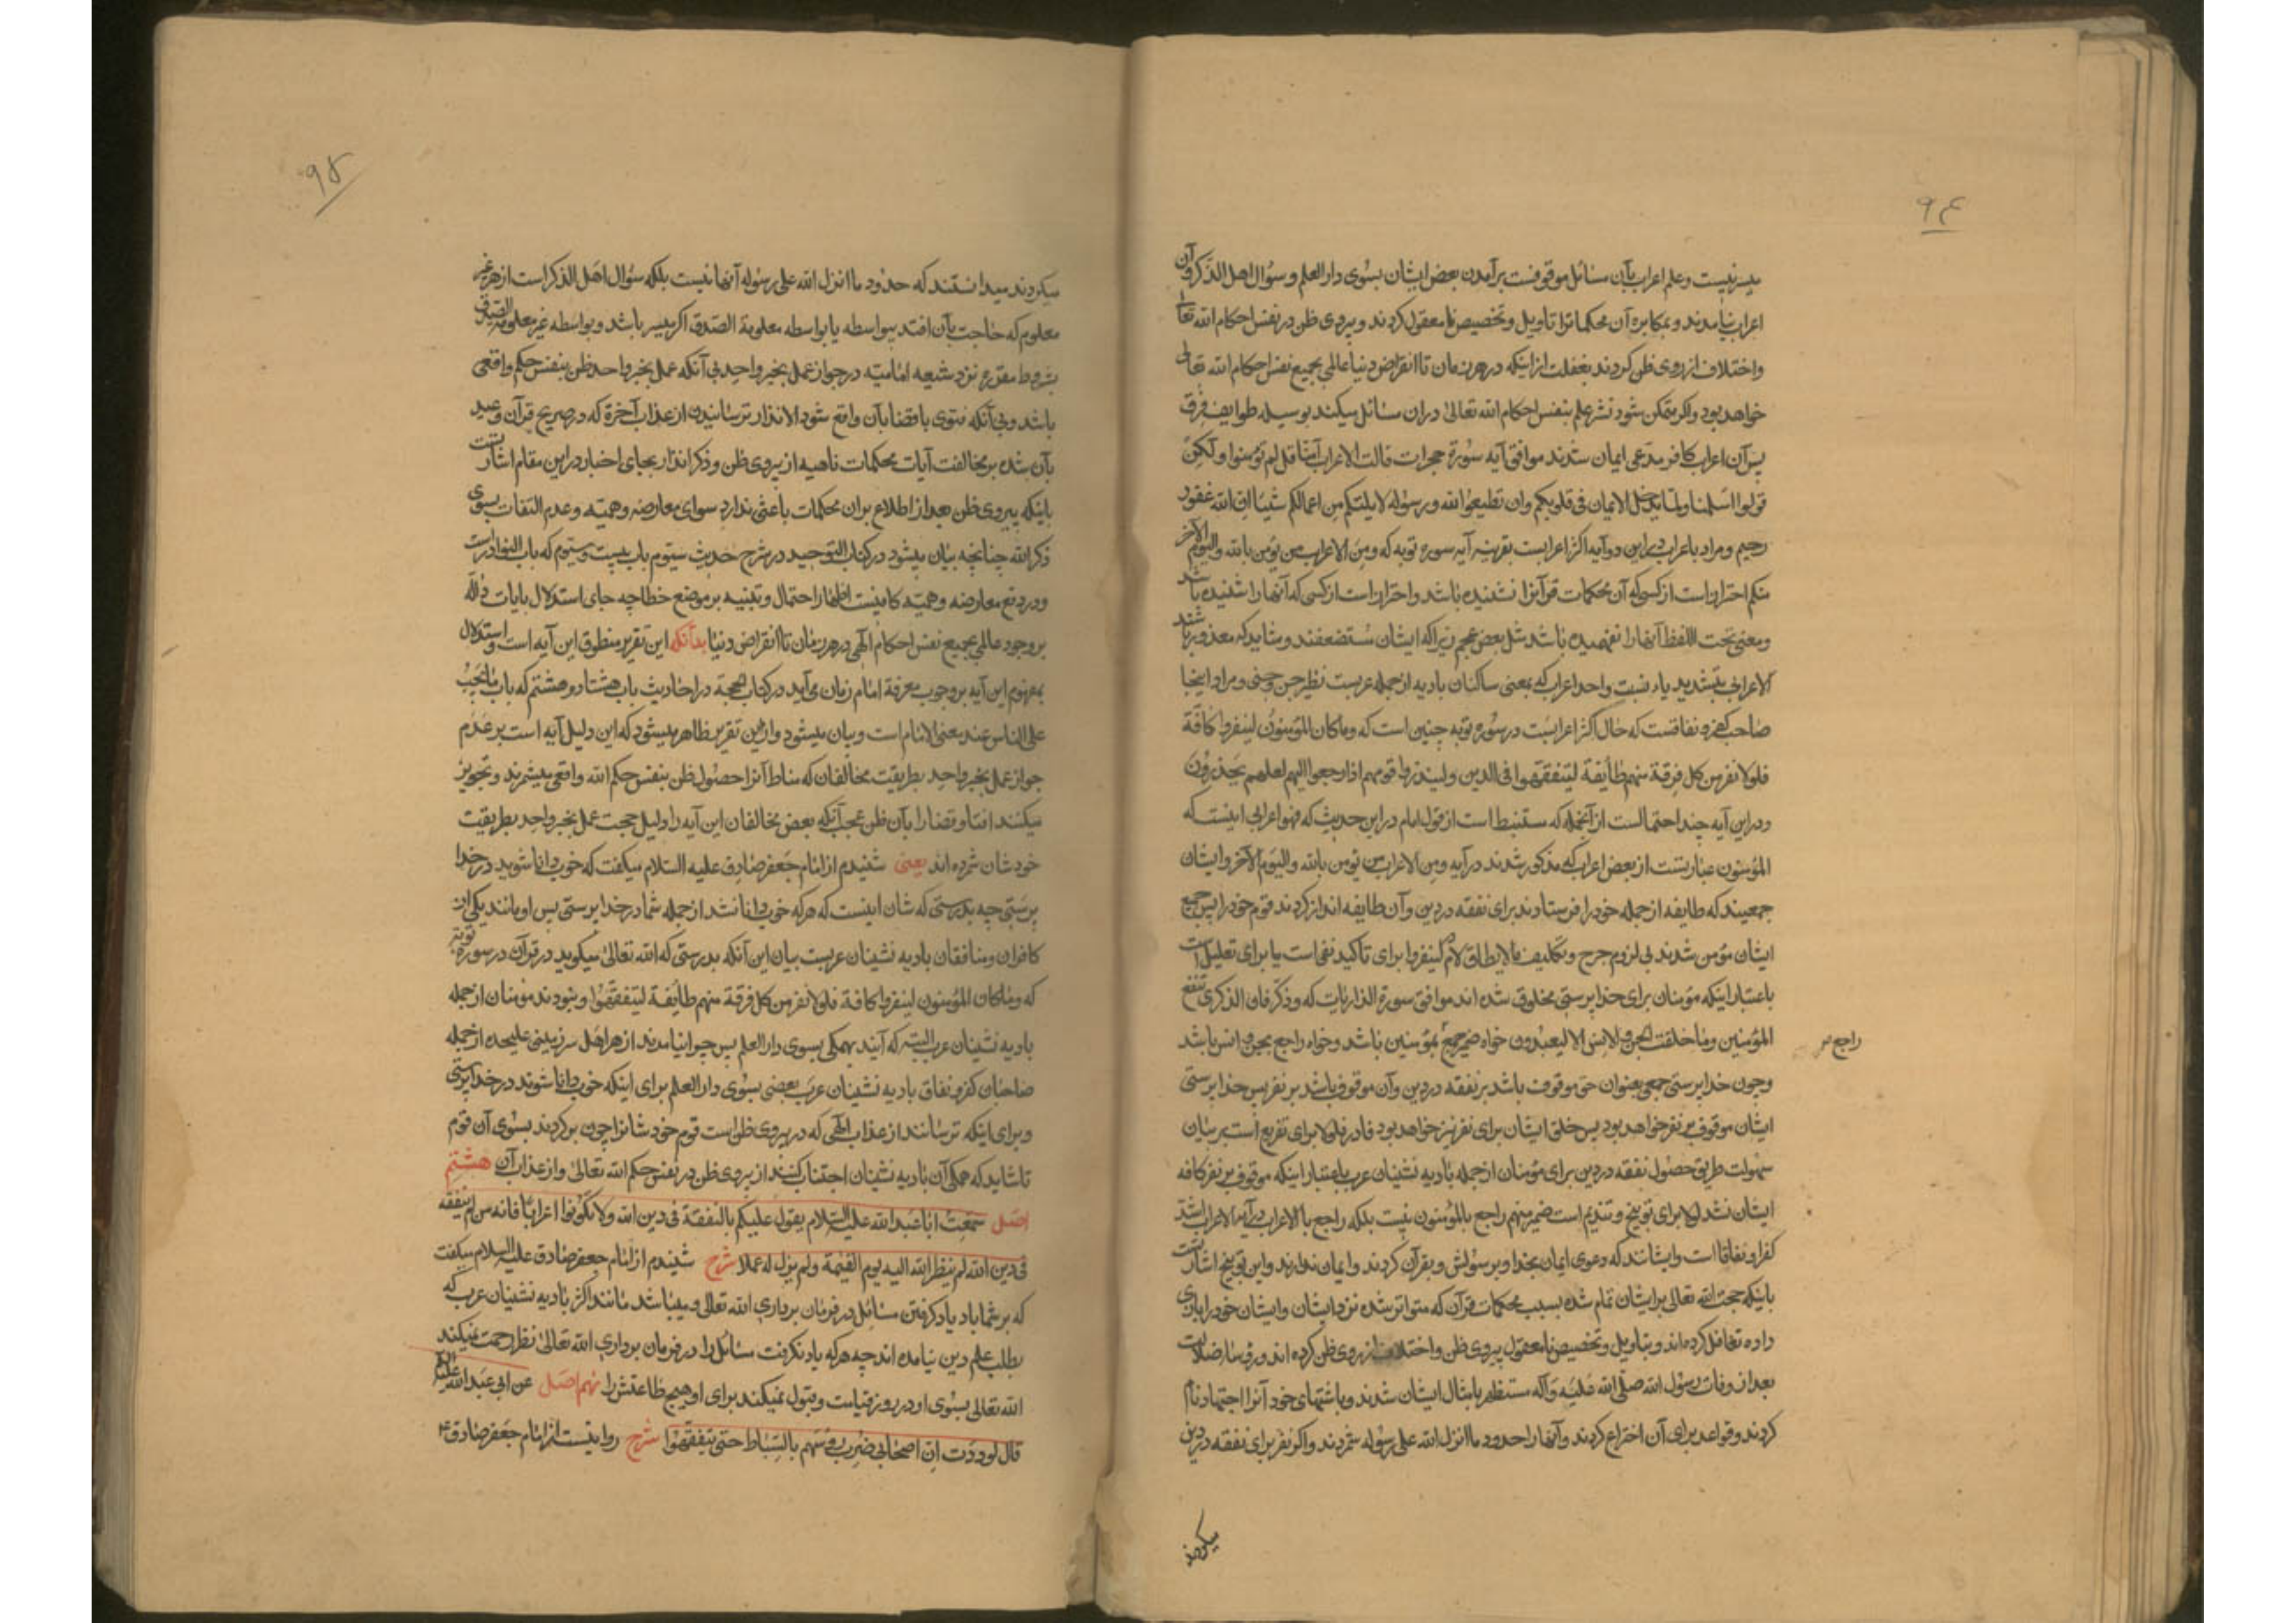 ۹۴
میسر نیست و علم اعراب بآن مسائل موقوفست برآمدن بعض ایشان بسوی دار العلم و سؤال اهل الذکر و آن
اعراب نیامدند و بمکابره آن محکماترا تاویل و تخصیص نامعقول کردند و پیروی ظن در نفس احکام الله تعالی
و اختلاف از روی ظن کردند بغفلت از اینکه در هر زمان تا انقراض دنیا عالمی بجمیع نفس احکام الله تعالی
خواهد بود و اگر متمکن شود نشر علم بنفس احکام الله تعالی دران مسائل میکند بوسیله طوایف فرق
پس آن اعراب کافر مدعی ایمان شدند موافق آیه سورۀ حجرات قالت الاعراب آمنّا قل لم تؤمنوا ولکن
قولوا اسلمنا ولمّا یدخل الایمان فی قلوبکم وان تطیعوا الله ورسوله لایلتکم من اعمالکم شیئا ان الله غفور
رحیم و مراد باعراب در این دو آیه اکثر اعرابست بقرینه آیه سوره توبه که ومن الاعراب من یؤمن بالله والیوم الآخر
منکم احتراز است از کسی که آن محکمات قرآنرا نشنیده باشد و احتراز است از کسی که آنها را شنیده باشد
و معنی تحت اللفظ آنها را نفهمیده باشد مثل بعض عجم زیرا که ایشان مستضعفند و شاید که معذور باشند
الاعرابی بتشدید یاء نسبت واحد اعراب که بمعنی ساکنان بادیه از جمله عربست نظیر جن و جنی و مراد اینجا
صاحب کفر و نفاقست که حال اکثر اعرابست در سوره توبه چنین است که وماکان المؤمنون لینفروا کافّة
فلولا نفر من کل فرقة منهم طائفة لیتفقهوا فی الدین ولینذروا قومهم اذا رجعوا الیهم لعلهم یحذرون
و در این آیه چند احتمالست از آنجمله که مستنبط است از قول امام در این حدیث که فهو اعرابی اینست که
المؤمنون عبارتست از بعض اعراب که مذکور شدند در آیه ومن الاعراب من یؤمن بالله والیوم الآخر و ایشان
جمعیند که طایفه از جمله خود را فرستادند برای تفقه در دین و آن طایفه انذار کردند قوم خود را پس جمیع
ایشان مؤمن شدند بی لزوم حرج و تکلیف مالایطاق لام لینفروا برای تاکید نفی است یا برای تعلیل است
باعتبار اینکه مؤمنان برای خداپرستی مخلوق شده اند موافق سورة الذاریات که وذکّر فان الذکری تنفع
المؤمنین وما خلقت الجن والانس الا لیعبدون خواه ضمیر جمع بمؤمنین باشد و خواه راجع بجن و انس باشد
راجع
و چون خداپرستی جمعی بعنوان حق موقوف باشد بر تفقه در دین و آن موقوف باشد بر نفر پس خداپرستی
ایشان موقوف بر نفر خواهد بود پس خلق ایشان برای نفر نیز خواهد بود فا در فلولا برای تفریع است بر بیان
سهولت طریق حصول تفقه در دین برای مؤمنان از جمله بادیه نشینان عرب باعتبار اینکه موقوف بر نفر کافه
ایشان نشد لولا برای توبیخ و تندیم است ضمیر منهم راجع بالمؤمنون نیست بلکه راجع با الاعراب در آیه الاعراب اشد
کفرا و نفاقا است و ایشانند که دعوی ایمان بخدا و برسولش و بقرآن کردند و ایمان ندارند و این توبیخ اشارتست
باینکه حجت الله تعالی بر ایشان تمام شده بسبب محکمات قرآن که متواتر شده نزد ایشان و ایشان خود را بازی
داده تغافل کرده اند و بتاویل و تخصیص نامعقول پیروی ظن و اختلاف از روی ظن کرده اند
بعد از وفات رسول الله صلی الله علیه وآله مستظهر بامثال ایشان شدند و باشتهای خود آنرا اجتهاد نام
کردند و قواعد برای آن اختراع کردند و آنها را حدود ما انزل الله علی رسوله شمردند و اگر نفر برای تفقه در دین
میکردند
۹۵
میکردند میدانستند که حدود ما انزل الله علی رسوله آنها نیست بلکه سؤال اهل الذکر است از هر غیر
معلوم که حاجت بآن افتد بیواسطه یا بواسطه معلومة الصدق اگر میسر باشد و بواسطه غیر معلومة الصدق
بشروط مقرره نزد شیعه امامیّه در جواز عمل بخبر واحد بی آنکه عمل بخبر واحد ظن بنفس حکم واقعی
باشد و بی آنکه فتوی یا قضا بآن واقع شود الانذار ترسانیدن از عذاب آخرة که در صریح قرآن وعید
بآن شده بر مخالفت آیات محکمات ناهیه از پیروی ظن و ذکر انذار بجای اخبار در این مقام اشارتست
باینکه پیروی ظن بعد از اطلاع بران محکمات باعثی ندارد سوای معارضه وهمیّه و عدم التفات بسوی
ذکر الله چنانچه بیان میشود در کتاب التوحید در شرح حدیث سیّوم باب بیست و سیّوم که باب النوادر است
و در دفع معارضه وهمیّه کافیست اظهار احتمال و تنبیه بر موضع خطا چه جای استدلال بایات دالّه
بر وجود عالمی بجمیع نفس احکام الهی در هر زمان تا انقراض دنیا بدآنکه این تقریر منطوق این آیه است و استدلال
بمفهوم این آیه بر وجوب معرفة امام زمان می آید در کتاب الحجة در احادیث باب هشتاد و هشتم که باب ما یجب
علی الناس عند مضی الامام است و بیان میشود و ازین تقریر ظاهر میشود که این دلیل آیه است بر عدم
جواز عمل بخبر واحد بطریقت مخالفان که مناط آنرا حصول ظن بنفس حکم الله واقعی میشمرند و تجویز
میکنند افتا و قضا را بآن ظن عجب آنکه بعض مخالفان این آیه را دلیل حجت عمل بخبر واحد بطریقت
خودشان شمرده اند یعنی شنیدم از امام جعفر صادق علیه السلام میگفت که خوب دانا شوید در خدا
پرستی چه بدرستی که شان اینست که هر که خوب دانا نشد از جمله شما در خدا پرستی پس او مانند یکی از
کافران و منافقان بادیه نشینان عربست بیان این آنکه بدرستی که الله تعالی میگوید در قرآن در سوره توبه
که وماکان المؤمنون لینفروا کافة فلولا نفر من کل فرقة منهم طایفة لیتفقهوا و نبودند مؤمنان از جمله
بادیه نشینان عرب البته که آیند همگی بسوی دار العلم پس چرا نیامدند از هر اهل سرزمینی علیحده از جمله
صاحبان کفر و نفاق بادیه نشینان عرب بعضی بسوی دار العلم برای اینکه خوب دانا شوند در خدا پرستی
و برای اینکه ترسانند از عذاب الهی که در پیروی ظن است قوم خودشانرا چون برگردند بسوی آن قوم
تا شاید که همگی آن بادیه نشینان اجتناب کنند از پیروی ظن در نفس حکم الله تعالی و از عذاب آن هشتم
اصل سمعت ابا عبد الله علیه السلام یقول علیکم بالتفقه فی دین الله ولا تکونوا اعرابا فانه من لم یتفقه
فی دین الله لم ینظر الله الیه یوم القیمة ولم یزل له عملا شرح شنیدم از امام جعفر صادق علیه السلام میگفت
که بر شما باد یاد گرفتن مسائل در فرمان برداری الله تعالی و میباشد مانند اکثر بادیه نشینان عرب که
بطلب علم دین نیامده اند چه هر که یاد نگرفت مسائل را در فرمان برداری الله تعالی نظر رحمت نمیکند
الله تعالی بسوی او در روز قیامت و قبول نمیکند برای او هیچ طاعتش را نهم اصل عن ابی عبد الله علیه السلام
قال لوددت ان اصحابی ضرب رؤسهم بالسیاط حتی یتفقهوا شرح روایتست از امام جعفر صادق ع